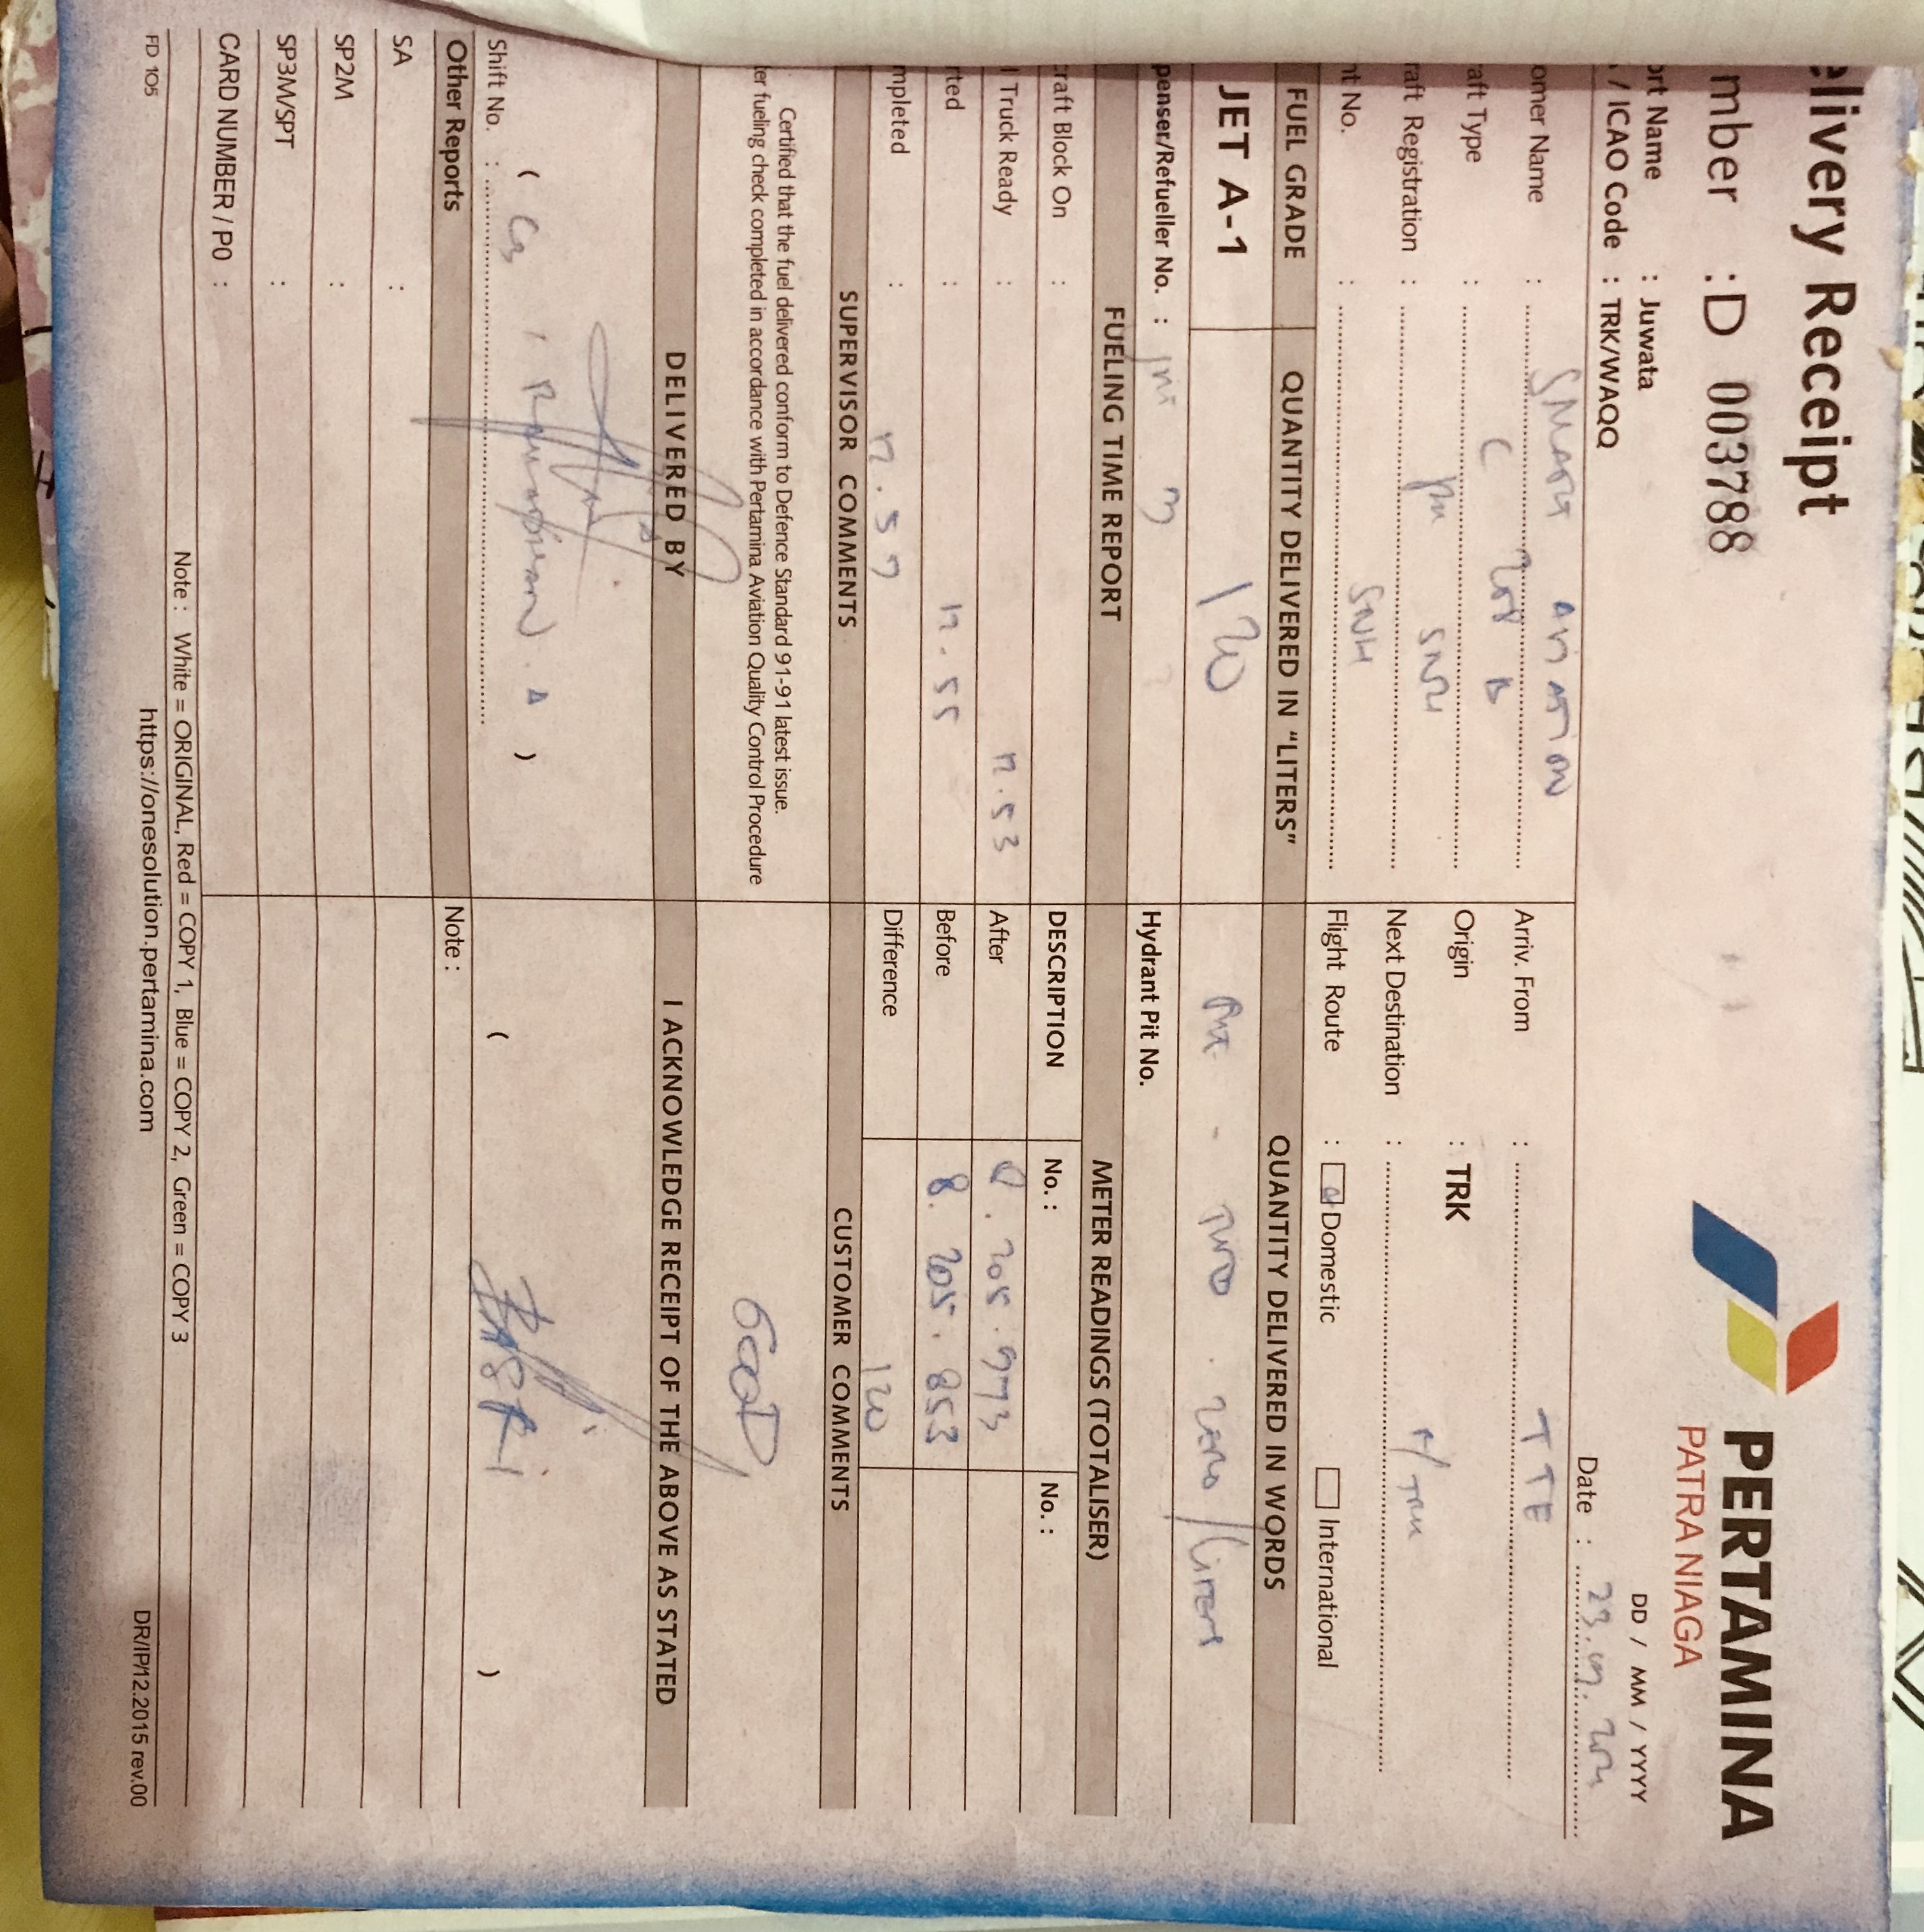 elivery Receipt
PERTAMINA
PATRA NIAGA
mber : D 003788
DD / MM / YYYY
ort Name : Juwata
/ ICAO Code : TRK/WAQQ
Date :
omer Name : SMART AVIATION
Arriv. From : TTE
raft Type : C 208 B
Origin : TRK
raft Registration : PK SNH
Next Destination :
ht No. : SNH
Flight Route : Domestic International
FUEL GRADE QUANTITY DELIVERED IN "LITERS" QUANTITY DELIVERED IN WORDS
JET A-1 120 TWO . zero / liters
penser/Refueller No. : 3 Hydrant Pit No.
FUELING TIME REPORT METER READINGS (TOTALISER)
craft Block On : DESCRIPTION No. : No. :
l Truck Ready : 12.53 After 8.205.973
rted : 12.55 Before 8.205.853
mpleted : 12.57 Difference 120
SUPERVISOR COMMENTS CUSTOMER COMMENTS
Certified that the fuel delivered conform to Defence Standard 91-91 latest issue.
ter fueling check completed in accordance with Pertamina Aviation Quality Control Procedure
GOOD
DELIVERED BY I ACKNOWLEDGE RECEIPT OF THE ABOVE AS STATED
( ) ( )
Shift No. :
Other Reports Note :
SA :
SP2M :
SP3M/SPT :
CARD NUMBER / PO :
Note : White = ORIGINAL, Red = COPY 1, Blue = COPY 2, Green = COPY 3
FD 105 https://onesolution.pertamina.com DR/IP/12.2015 rev.00